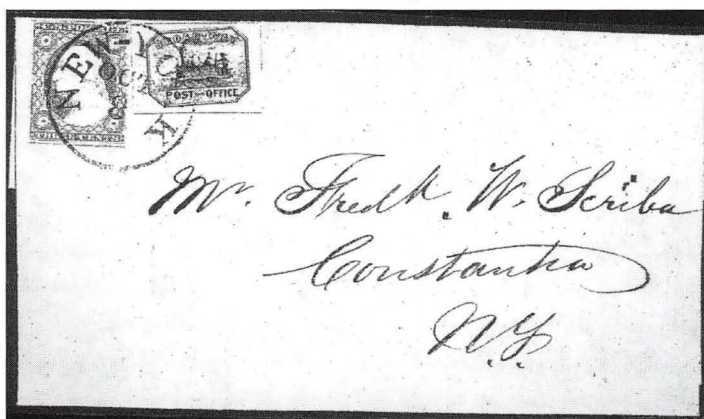 NEW YORK
OCT
BROADWAY
POST-OFFICE
Mr. Fredk. W. Scriba
Constantia
N.Y.